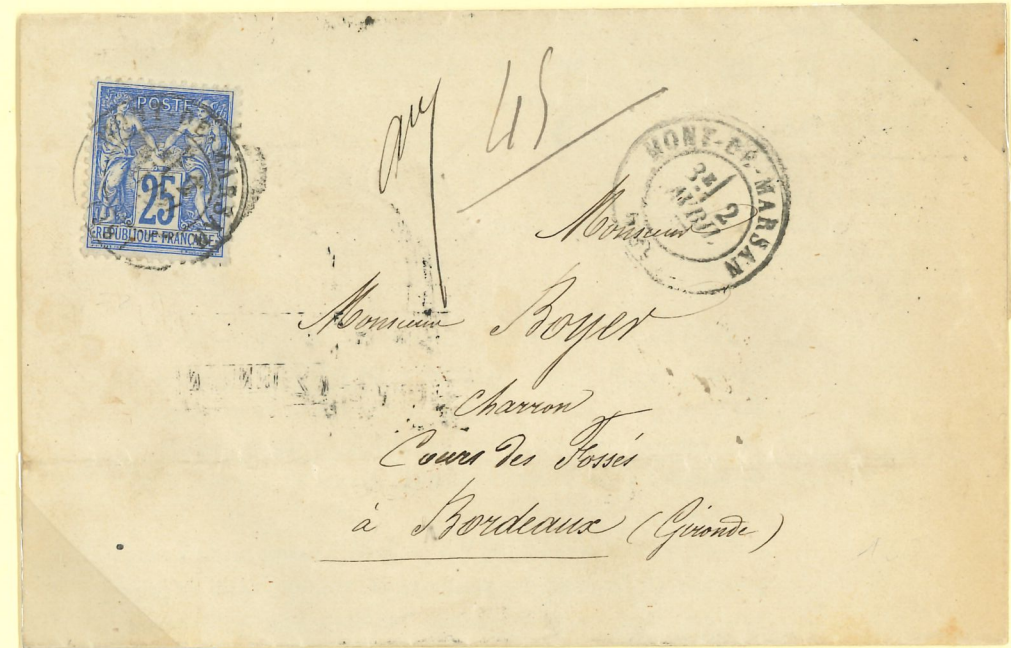 POSTE
25
RÉPUBLIQUE FRANÇAISE
45
MONT-DE-MARSAN
3E
2
AVRIL
Monsieur
Monsieur Boyer
Charron
Cours des Fossés
à Bordeaux (Gironde)